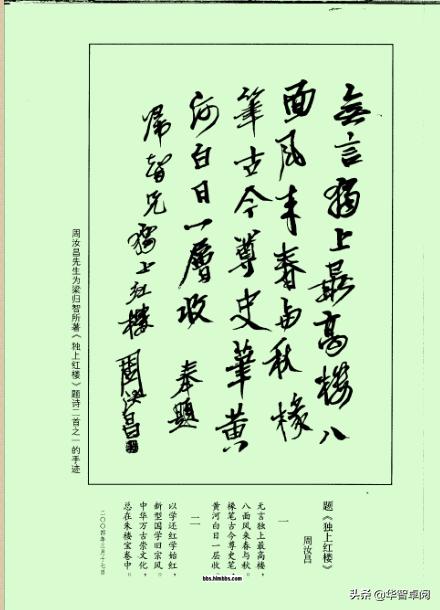 無言獨上最高樓八
面风来春与秋椽
筆古今尊史筆黄
河白日一層收 奉題
歸智兄獨上红樓 周汝昌
周汝昌先生为梁归智所著《独上红楼》题诗二首之一的手迹
题《独上红楼》
周汝昌
一
无言独上最高楼，
八面风来春与秋。
椽笔古今尊史笔，
黄河白日一层收。
二
以学还红学始红，
新型国学旧宗风。
中华万古崇文化，
总在朱楼宝卷中。
二〇〇四年三月十七日
bbs.hlmbbs.com
头条 @华智卓阅